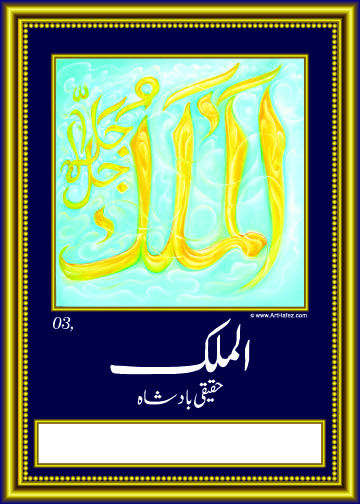 الملك جل جلاله
© www.ArtHafez.com
03,
الملک
حقیقی بادشاہ